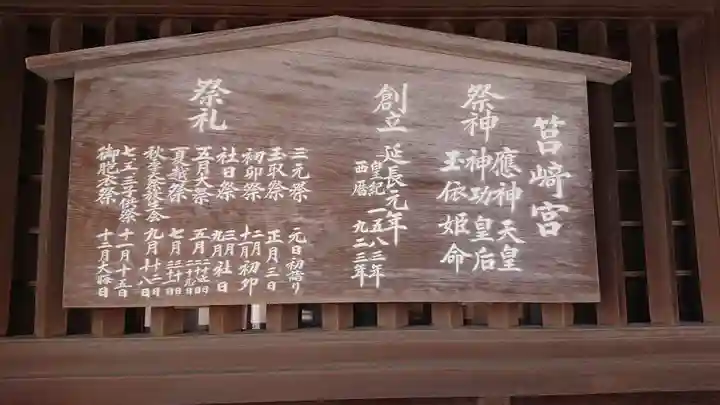 筥崎宮
祭神
應神天皇
神功皇后
玉依姫命
創立
延長元年
皇紀一五八三年
西暦九二三年
祭礼
三元祭 元日初詣り
玉取祭 正月三日
初卯祭 二月 十一月 初卯
社日祭 三月 九月 社日
五月大祭 五月
夏越祭 七月
秋季大祭放生会 九月
七五三子供祭 十一月十五日
御胞衣祭 十二月大晦日